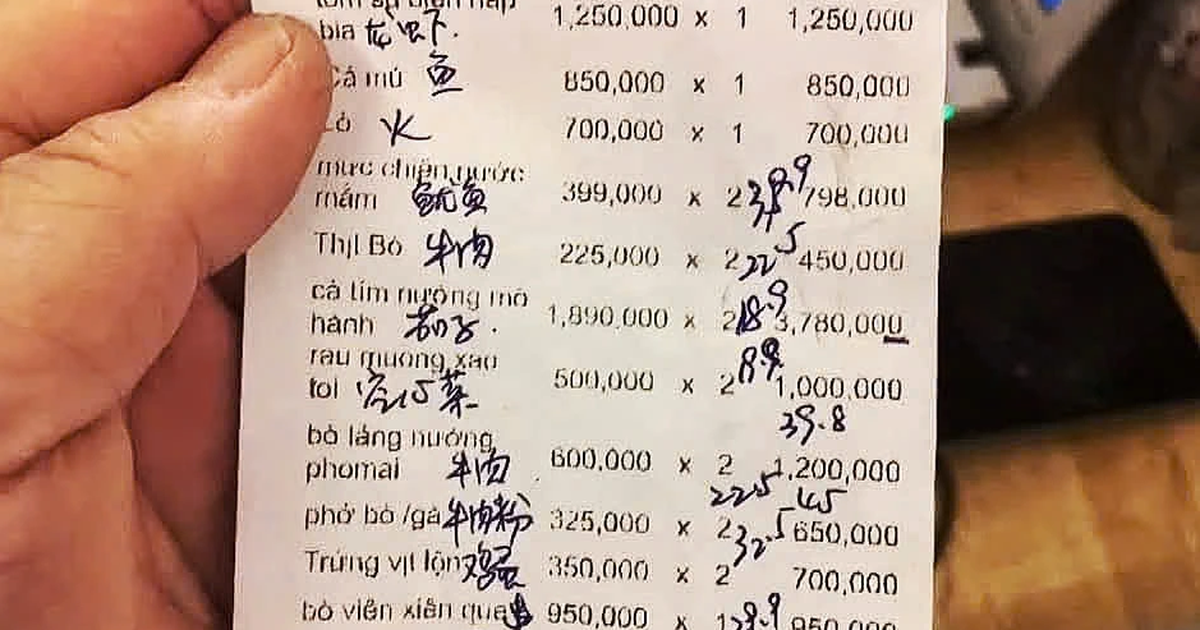 bia 龙虾. 1,250,000 x 1 1,250,000
Cá mú 鱼 850,000 x 1 850,000
火 700,000 x 1 700,000
mực chiên nước
mắm 鱿鱼 399,000 x 2 798,000
Thịt Bò 牛肉 225,000 x 2 22.5 450,000
cà tím nướng mỡ
hành 茄子. 1,890,000 x 2 18.9 3,780,000
rau muống xào
tỏi 空心菜 500,000 x 2 1,000,000
39.8
bò lảng nướng
phomai 牛肉 600,000 x 2 1,200,000
22.5 45
phở bò /gà 牛肉粉 325,000 x 2 32.5 650,000
Trứng vịt lộn 鸡蛋 350,000 x 2 700,000
bò viên xiên que 950,000 x 1 950,000